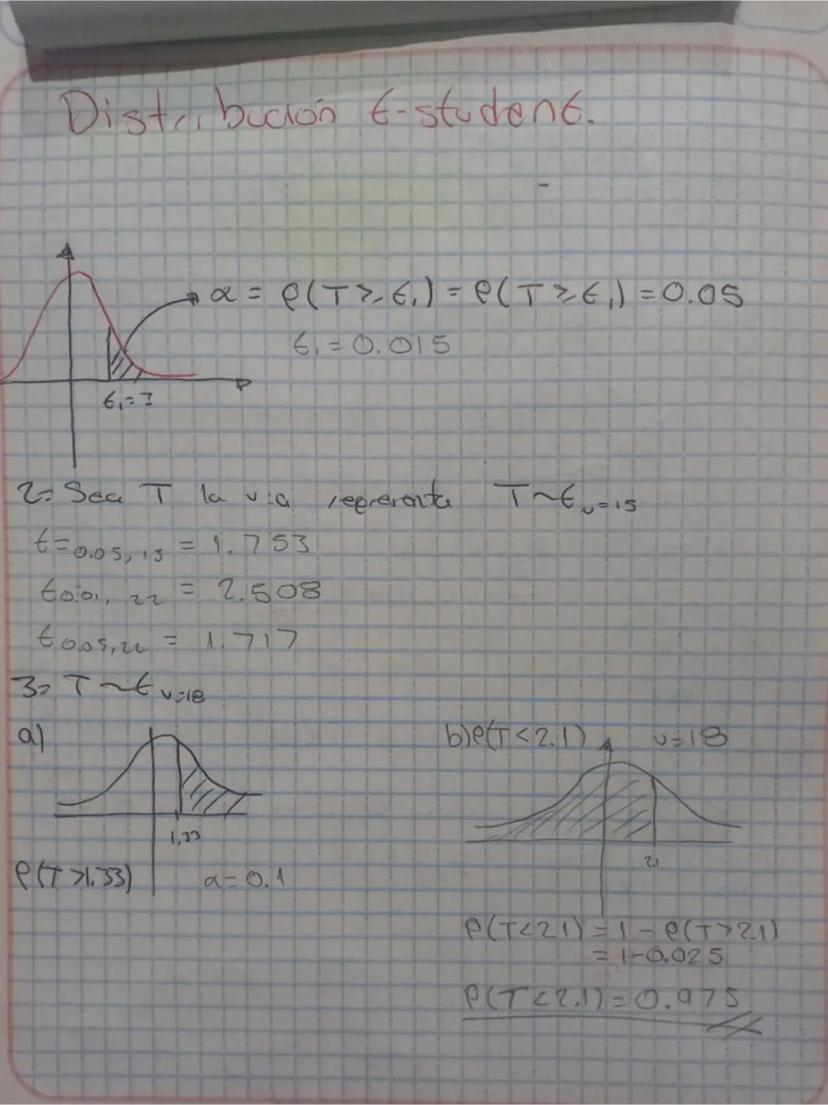 Distribución t-student.
α = P(T ≥ t₁) = P(T ≥ t₁) = 0.05
t₁ = 0.015
t₁ = ?
2= Sea T la v.a representa T ~ t v=15
t=0.05, 15 = 1.753
t0.01, 22 = 2.508
t0.05, 22 = 1.717
3= T ~ t v=18
a)
1.33
P(T > 1.33) α = 0.1
b) P(T < 2.1) v=18
P(T < 2.1) = 1 - P(T > 2.1)
= 1 - 0.025
P(T < 2.1) = 0.975